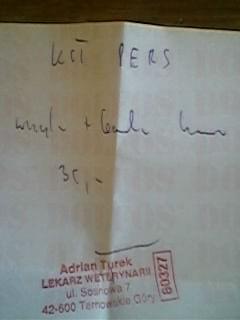 KOT PERS
+
35,-
Adrian Turek
LEKARZ WETERYNARII
ul. Sosnowa 7
42-600 Tarnowskie Góry
60327